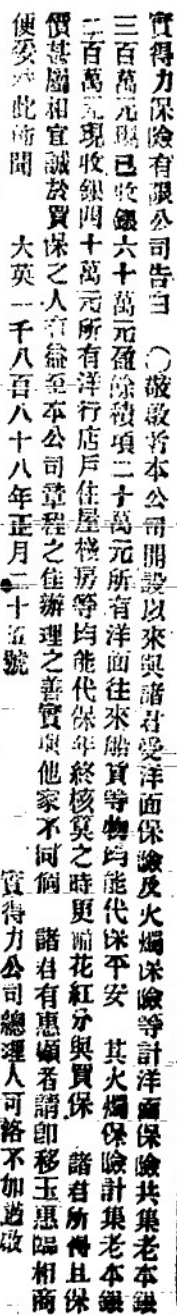 實得力保險有限公司告白　〇敬啟者本公司開設以來與諸君受洋面保險及火燭保險等計洋面保險共集老本銀
三百萬元現已收銀六十萬元盈餘積項二十萬元所有洋面往來船貨等物均能代保平安　其火燭保險計集老本銀
二百萬元現收銀四十萬元所有洋行店戶住屋棧房等均能代保年終核算之時更有花紅分與買保　諸君所得且保
價甚屬相宜誠於買保之人有益至本公司章程之佳辦理之善實與他家不同倘　諸君有惠顧者請即移玉惠臨相商
便妥　此佈聞　　大英一千八百八十八年正月二十五號　　　　　　　　寶得力公司總理人可洛不加過啟